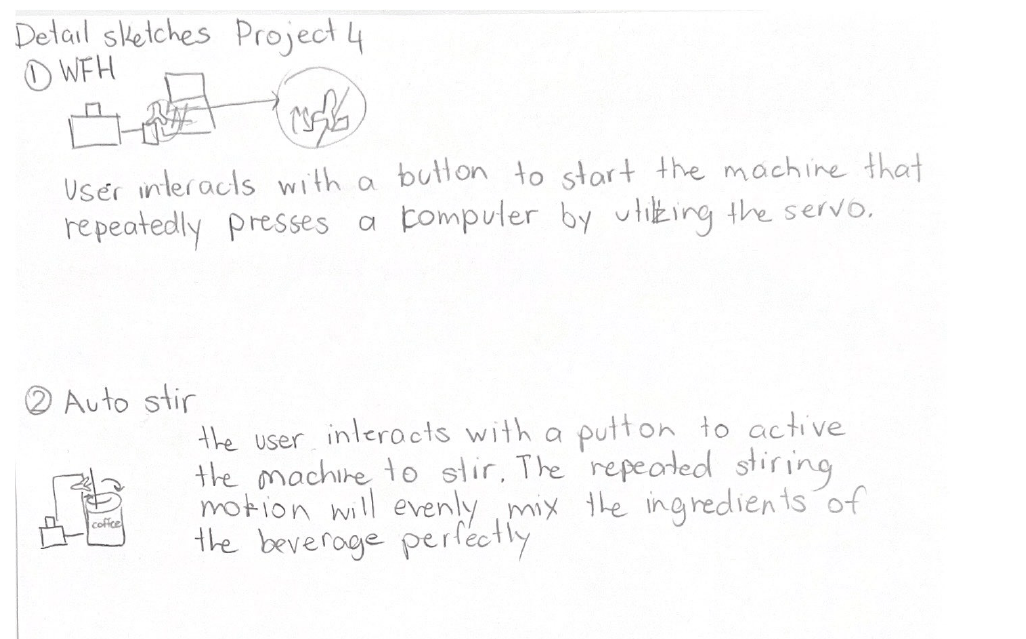 Detail sketches Project 4
① WFH
User interacts with a button to start the machine that
repeatedly presses a computer by utilizing the servo.
② Auto stir
the user interacts with a putton to active
the machine to stir. The repeated stiring
motion will evenly mix the ingredients of
the beverage perfectly
coffee